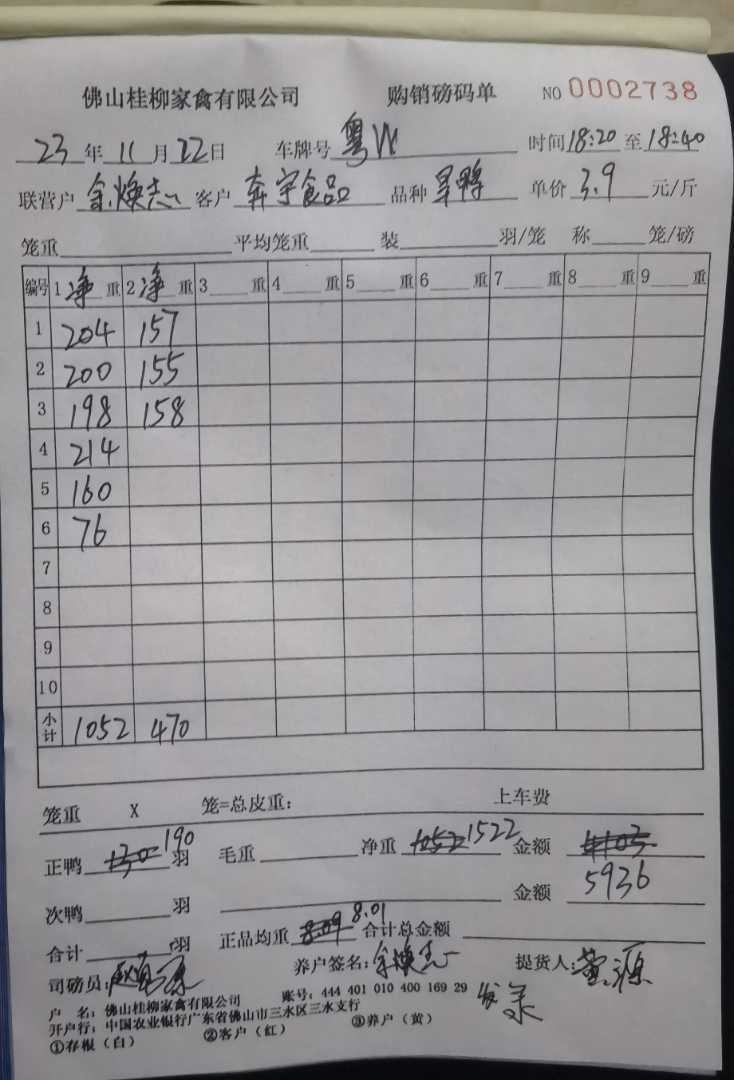 佛山桂柳家禽有限公司 购销磅码单 NO 0002738
23年11月22日 车牌号 粤W 时间18:20至18:40
联营户 余焕志 客户 奔宇食品 品种 旱鸭 单价 3.9 元/斤
笼重 平均笼重 装 羽/笼 称 笼/磅
编号 1 净 重 2 净 重 3 重 4 重 5 重 6 重 7 重 8 重 9 重
1 204 157
2 200 155
3 198 158
4 214
5 160
6 76
7
8
9
10
小计 1052 470
笼重 X 笼=总皮重: 上车费
正鸭 130 190 羽 毛重 净重 1052 1522 金额 4103
次鸭 羽 金额 5936
合计 羽 正品均重 8.09 8.01 合计总金额
司磅员: 养户签名: 余焕志 提货人: 黄源
户 名: 佛山桂柳家禽有限公司 账号: 444 401 010 400 169 29
开户行: 中国农业银行广东省佛山市三水区三水支行
①存根（白） ②客户（红） ③养户（黄）